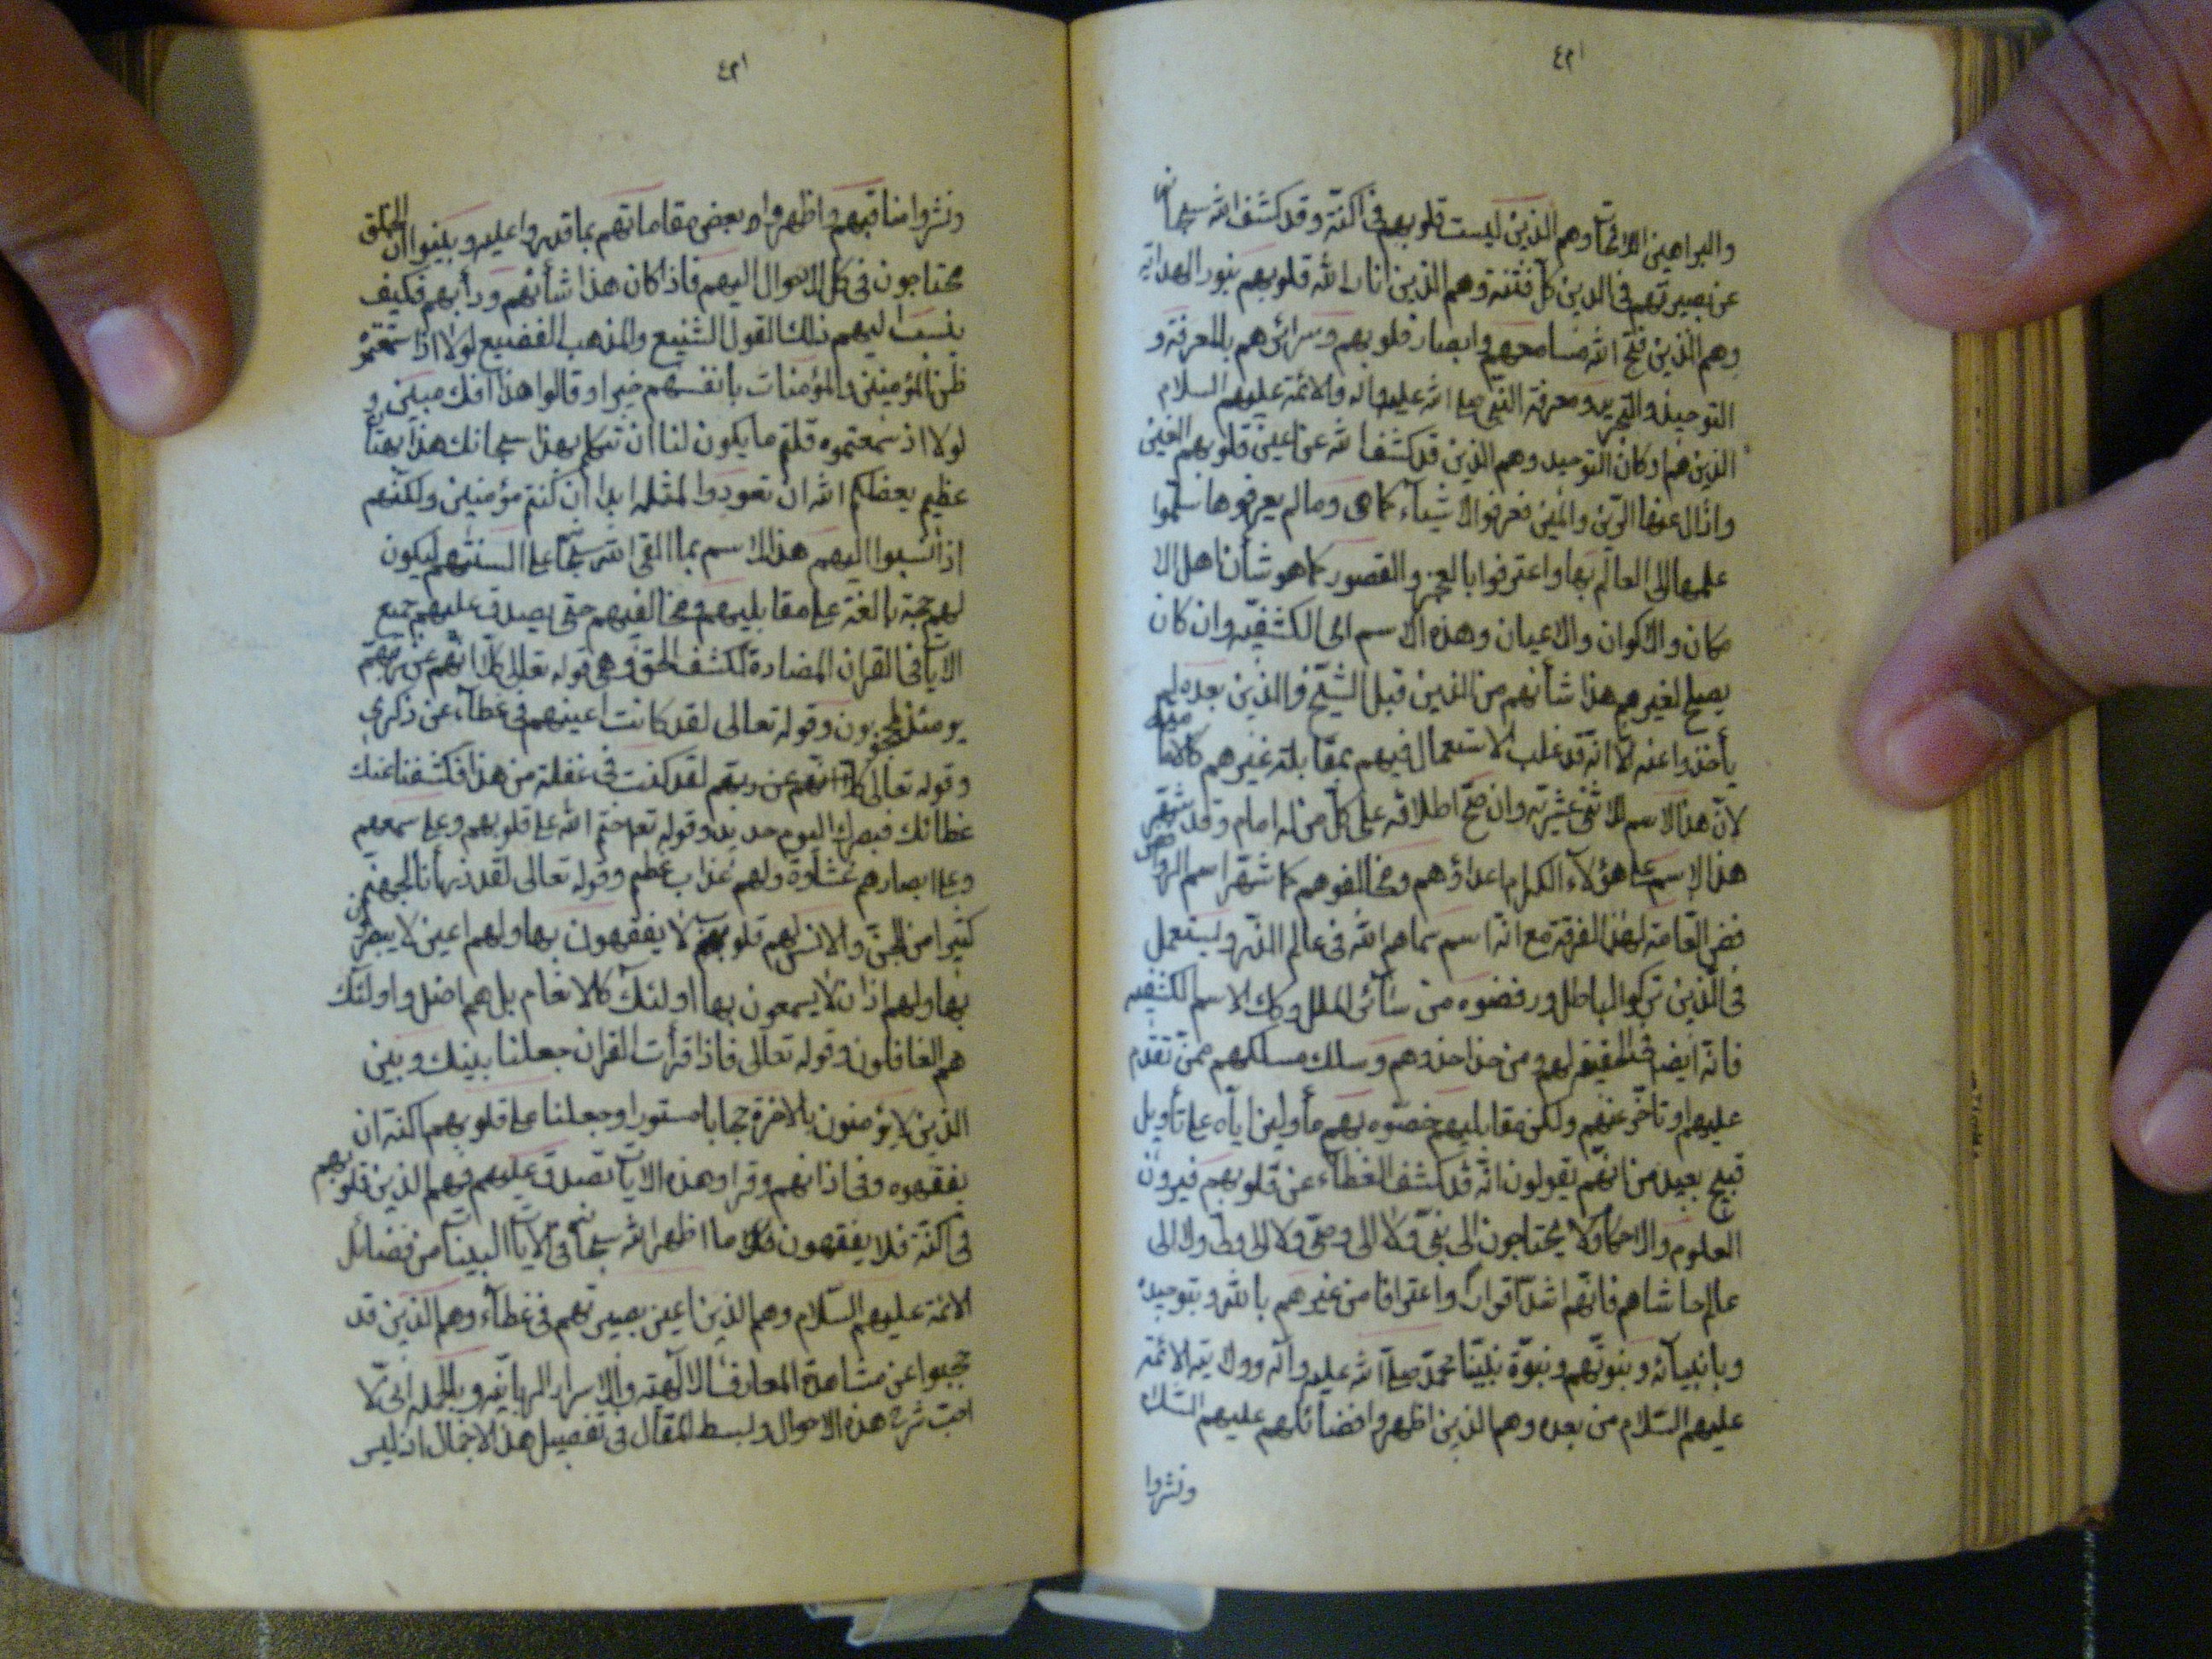 ٤٢١
والبراهين اللائحات وهم الذين ليست قلوبهم في اكنّة وقد كشف الله سبحانه
عن بصيرتهم في الدين كل فتنة وهم الذين انار الله قلوبهم بنور الهداية
وهم الذين فتح الله مسامعهم وابصار قلوبهم وسرائرهم بالمعرفة و
التوحيد والتجريد ومعرفة النبي صلى الله عليه واله والائمة عليهم السلام
الذين هم اركان التوحيد وهم الذين قد كشف الله عن اعين قلوبهم الغين
وازال عنها الرّين والمين فعرفوا الاشيآء كما هي وما لم يعرفوها سلّموا
علمها الى العالم بها واعترفوا بالعجز والقصور كما هو شأن اهل الا
مكان والاكوان والاعيان وهذه الاسم اي الكشفيّه وان كان
يصلح لغيرهم هذا شأنهم من الذين قبل الشيخ والذين بعده لم
يأخذوا عنه الّا انّه قد غلب الاستعمال فيهم بمقابلة غيرهم كالاماميه
لانّ هذا الاسم للاثني عشريّه وان صحّ اطلاقه على كلّ من له امام وقد شهّر
هذا الاسم على هؤلآء الكرام اعداؤهم ومخالفوهم كما شهّر اسم الروافض
العامّة لهذا الفرقة مع انّه اسم سماهم الله في عالم الذّر ويستعمل
في الّذين تركوا الباطل ورفضوه من سائر الملل وكك الاسم الكشفيه
فانّه ايضا في الحقيقه لهم ومن حذا حذوهم وسلك مسلكهم ممّن تقدم
عليهم او تأخّر عنهم ولكن مقابليهم خصّوه بهم مأولين ايّاه على تأويل
قبيح بعيد من انهّم يقولون انّه قد كشف الغطآء عن قلوبهم فيرون
العلوم والاحكام ولا يحتاجون الى نبيّ ولا الى وصيّ ولا الى وليّ ولا الى
عالم حاشاهم فانّهم اشدّ اقرارا واعترافا من غيرهم بالله وبتوحيده
وبانبيآئه وبنبوّتهم وبنبوّة نبيّنا محمّد صلى الله عليه وآله وولاية الائمّة
عليهم السّلام من بعده وهم الذين اظهروا فضائلهم عليهم السّلام
ونشروا
٤٢١
ونشروا مناقبهم واظهروا بعض مقاماتهم بما قدروا عليه وبيّنوا ان الخلق
محتاجون في كل الاحوال اليهم فاذا كان هذا شأنهم ورأيهم فكيف
ينسب اليهم ذلك القول الشنيع والمذهب الفضيع لولا اذا سمعتموه
ظنّ المؤمنين والمؤمنات بانفسهم خيرا وقالوا هذا افك مبين و
لولا اذ سمعتموه قلتم ما يكون لنا ان نتكلم بهذا سبحانك هذا بهتان
عظيم يعظكم الله ان تعودوا لمثله ابدا ان كنتم مؤمنين ولكنّهم
اذا نسبوا اليهم هذا الاسم بما القى الله سبحانه على السنتهم ليكون
لهم حجّة بالغة على مقابليهم ومخالفيهم حتى يصدق عليهم جميع
الآيات في القران المضادة لكشف الحق وهي قوله تعالى كلّا انّهم عن ربهم
يومئذ لمحجوبون وقوله تعالى لقد كانت اعينهم في غطآء عن ذكري
وقوله تعالى كلا انهم عن ربهم لقد كنت في غفلة من هذا فكشفنا عنك
غطائك فبصرك اليوم حديد وقوله تعه ختم الله على قلوبهم وعلى سمعهم
وعلى ابصارهم غشاوة ولهم عذاب عظيم وقوله تعالى لقد ذرأنا لجهنّم
كثيرا من الجنّ والانس لهم قلوب لا يفقهون بها ولهم اعين لا يبصرون
بها ولهم اذان لا يسمعون بها اولئك كالانعام بل هم اضل واولئك
هم الغافلون وقوله تعالى فاذا قرأت القران جعلنا بينك وبين
الذين لا يؤمنون بالاخرة حجابا مستورا وجعلنا على قلوبهم اكنّة ان
يفقهوه وفي اذانهم وقرا وهذه الايات تصدق عليهم فهم الذين قلوبهم
في اكنّة فلا يفقهون ما اظهر الله سبحانه في الآيات البينات من فضائل
الائمة عليهم السّلام وهم الذين اعين بصيرتهم في غطآء وهم الذين قد
حجبوا عن مشاهدة المعارف الالهيّة والاسرار الربانّيه وبالجمله انّي لا
احبّ شرح هذه الاحوال وبسط المقال في تفصيل هذا الاجمال اذ ليس